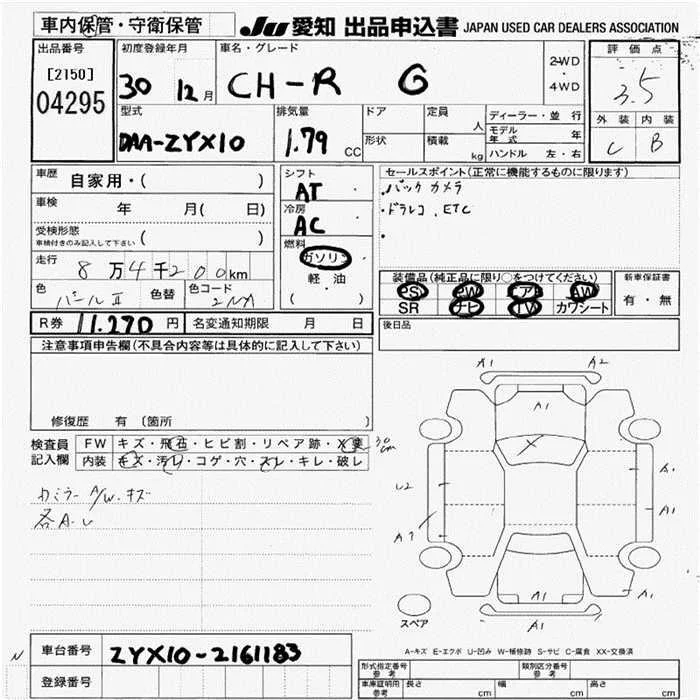 車内保管・守衛保管
JU 愛知 出品申込書 JAPAN USED CAR DEALERS ASSOCIATION
出品番号
[2150]
04295
初度登録年月
30 12月
車名・グレード
CH-R G
2WD
・
4WD
評価点
3.5
外装 内装
C B
型式
DAA-ZYX10
排気量
1.79 CC
ドア
形状
定員
人
積載
kg
ディーラー・並行
モデル年式 年
ハンドル 左・右
車歴 自家用・( )
車検 年 月( 日)
受検形態
車検付きのみ記入して下さい ( )
走行 8万4千200km
色 パールⅡ 色替 色コード 2NA
シフト
AT ・
冷房
AC ・
燃料
ガソリン
軽油
( )
セールスポイント(正常に機能するものに限ります)
・バックカメラ
・ドラレコ、ETC
・
装備品(純正品に限り○をつけてください)
PS PW エアB AW
SR ナビ TV カワシート
新車保証書
有・無
R券 11,270 円 名変通知期限 月 日
後日品
注意事項申告欄(不具合内容等は具体的に記入して下さい)
修復歴 有 〔箇所 〕
検査員
記入欄
FW キズ・飛石・ヒビ割・リペア跡・X要 30cm
内装 キズ・汚れ・コゲ・穴・スレ・キレ・破レ
カミラー A/W.キズ
各A.U
A1 A2
A1
X
U2 A1
A1
A1
A1 A1
スペア
A1
A-キズ E-エクボ U-凹み W-補修跡 S-サビ C-腐食 XX-交換済
N
車台番号 ZYX10-2161183
登録番号
型式指定番号
参考
類別区分番号
参考
車庫証明用
参考
長さ cm 幅 cm 高さ cm